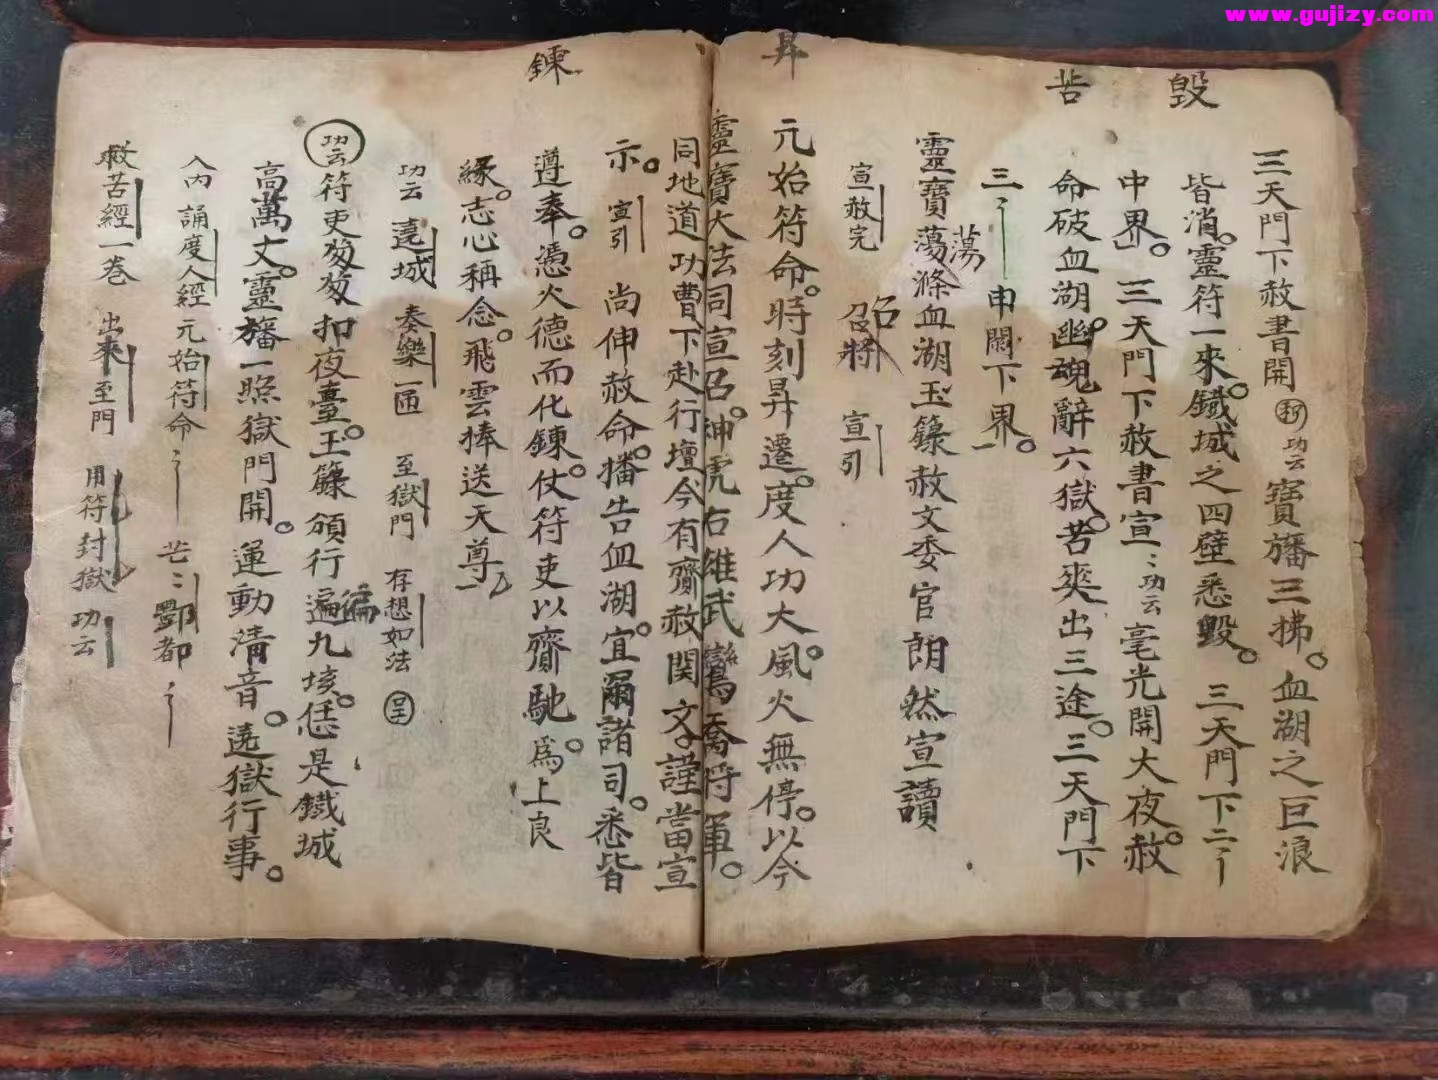 www.gujizy.com
毀
苦
昇
鍊
三天門下赦書開 功云 寶旛三拂。血湖之巨浪
皆消。靈符一來。鐵城之四壁悉毀。三天門下二〻
中界。三天門下赦書宣〻功云毫光開大夜。赦
命破血湖。幽魂辭六獄。苦爽出三途。三天門下
三〻申閞下界。
靈寶蕩滌血湖玉籙赦文委官朗然宣讀
蕩
宣赦完 召將 宣引
召
元始符命。時刻昇遷。度人功大。風火無停。以今
靈寶大法司宣召。神虎右雄武鸞喬將軍。
同地道功曹下赴行壇今有齎赦関文。謹當宣
示。宣引 尚伸赦命。播告血湖。宜爾諸司。悉皆
遵奉。憑火德而化鍊。仗符吏以齎馳。為上良
緣。志心稱念。飛雲捧送天尊
功云 遶城 奏樂一匝 至獄門 存想如法
功云 符吏匆匆扣夜臺。玉籙頒行遍九垓。恁是鐵城
徧
高萬丈。靈旛一照獄門開。運動清音。遶獄行事。
入內誦度人經元始符命〻 芒〻酆都〻
救苦經一卷 出來至門 用符封獄 功云